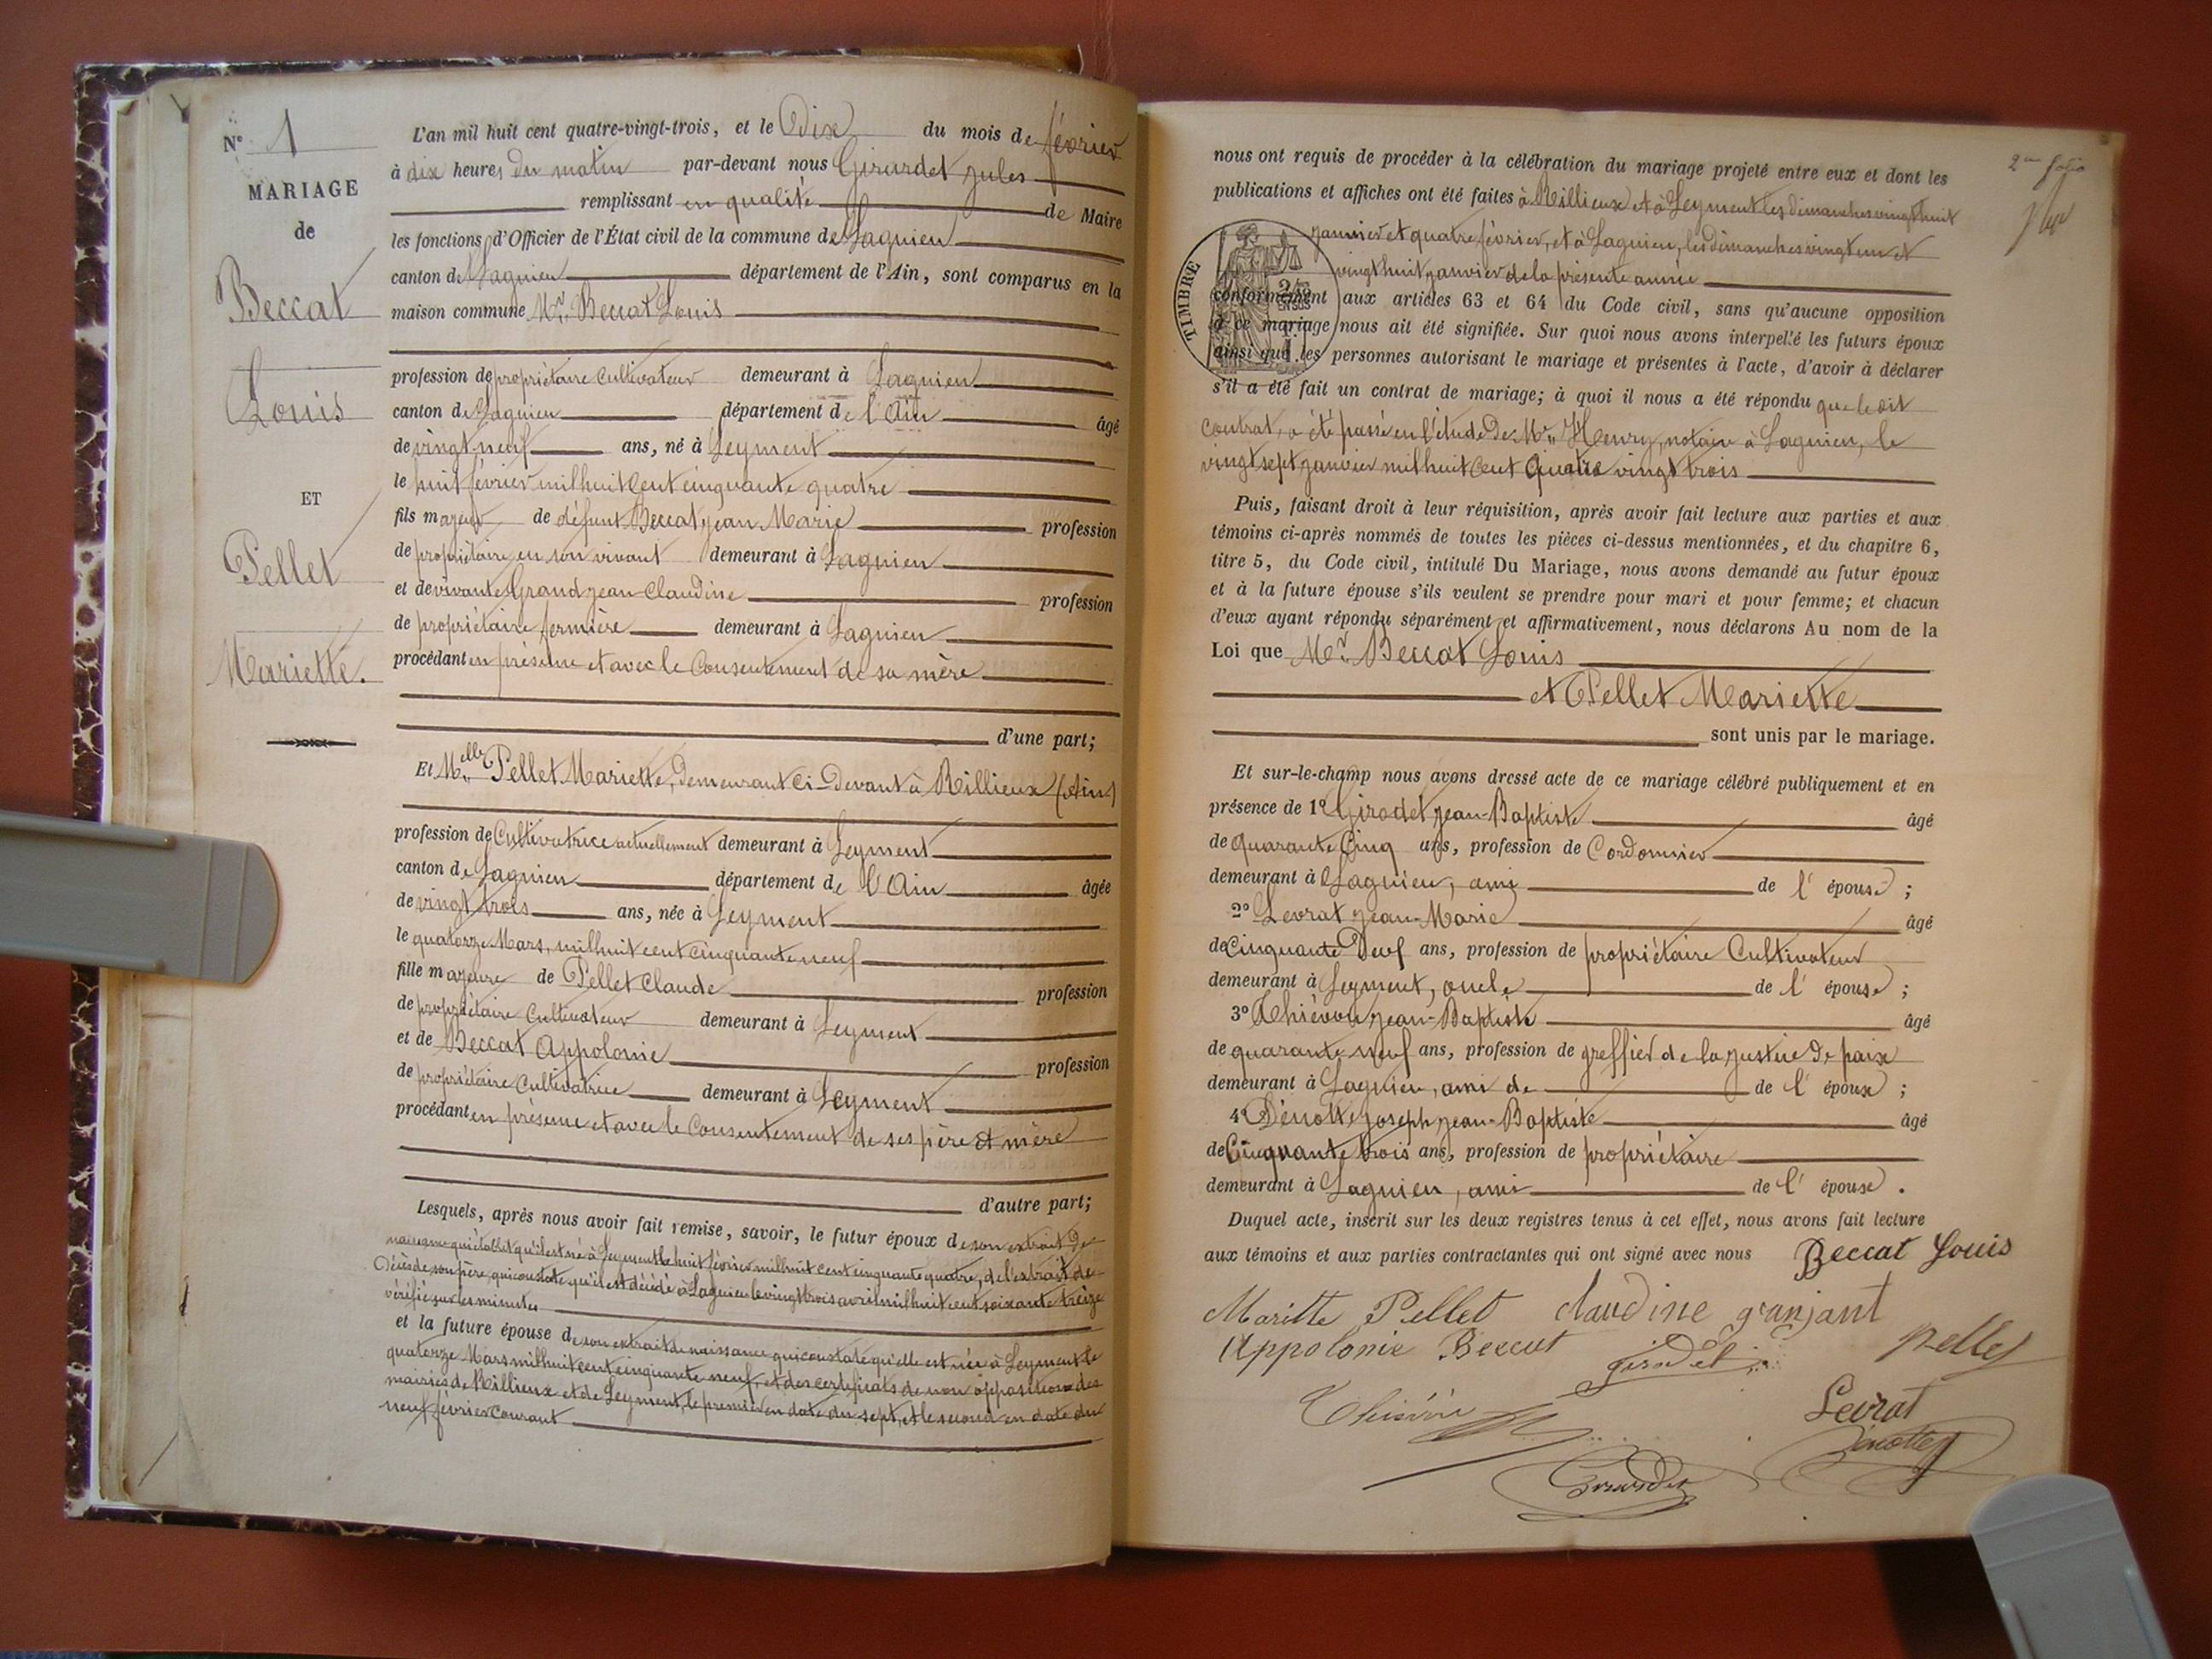 N° 1
MARIAGE
de
Beccat
Louis
ET
Pellet
Mariette.
L'an mil huit cent quatre-vingt-trois, et le Dix du mois de février
à dix heures du matin par-devant nous Girardet Jules
remplissant en qualité de Maire
les fonctions d'Officier de l'État civil de la commune de Lagnieu
canton de Lagnieu département de l'Ain, sont comparus en la
maison commune Mr. Beccat Louis
profession de propriétaire Cultivateur demeurant à Lagnieu
canton de Lagnieu département de l'Ain âgé
de vingt-neuf ans, né à Leyment
le huit février mil huit Cent cinquante quatre
fils majeur de défunt Beccat Jean Marie profession
de propriétaire en son vivant demeurant à Lagnieu
et de vivante Grandjean Claudine profession
de propriétaire fermière demeurant à Lagnieu
procédant en présence et avec le Consentement de sa mère
d'une part;
Et Melle Pellet Mariette, Demeurant Ci-Devant à Rillieux (Ain)
profession de Cultivatrice actuellement demeurant à Leyment
canton de Lagnieu département de l'Ain âgée
de vingt trois ans, née à Leyment
le quatorze Mars, mil huit cent cinquante neuf
fille majeure de Pellet Claude profession
de propriétaire Cultivateur demeurant à Leyment
et de Beccat Appolonie profession
de propriétaire Cultivatrice demeurant à Leyment
procédant en présence et avec le Consentement de ses père et mère
d'autre part;
Lesquels, après nous avoir fait remise, savoir, le futur époux de son extrait de
naissance qui établit qu'il est né à Leyment le huit février mil huit cent cinquante quatre, de l'extrait de
Décès de son père, qui constate qu'il est décédé à Lagnieu le vingt trois avril mil huit cent soixante treize
vérifié sur les minutes
et la future épouse de son extrait de naissance qui constate qu'elle est née à Leyment le
quatorze Mars mil huit cent cinquante neuf, et des certificats de non opposition des
mairies de Rillieux et de Leyment, le premier en date du sept, et le second en date du
neuf février courant
2me folio
nous ont requis de procéder à la célébration du mariage projeté entre eux et dont les
publications et affiches ont été faites à Rillieux et à Leyment les dimanches vingt huit
janvier et quatre février, et à Lagnieu, les dimanches vingt un et
vingt huit janvier de la présente année
TIMBRE
conformément aux articles 63 et 64 du Code civil, sans qu'aucune opposition
à ce mariage nous ait été signifiée. Sur quoi nous avons interpellé les futurs époux
ainsi que les personnes autorisant le mariage et présentes à l'acte, d'avoir à déclarer
s'il a été fait un contrat de mariage; à quoi il nous a été répondu que le dit
contrat, a été passé en l'étude de Mr. Henry, notaire à Lagnieu, le
vingt sept janvier mil huit Cent Quatre vingt trois
Puis, faisant droit à leur réquisition, après avoir fait lecture aux parties et aux
témoins ci-après nommés de toutes les pièces ci-dessus mentionnées, et du chapitre 6,
titre 5, du Code civil, intitulé Du Mariage, nous avons demandé au futur époux
et à la future épouse s'ils veulent se prendre pour mari et pour femme; et chacun
d'eux ayant répondu séparément et affirmativement, nous déclarons Au nom de la
Loi que Mr. Beccat Louis
et Pellet Mariette
sont unis par le mariage.
Et sur-le-champ nous avons dressé acte de ce mariage célébré publiquement et en
présence de 1° Girodet Jean-Baptiste âgé
de quarante Cinq ans, profession de Cordonnier
demeurant à Lagnieu, ami de l'épouse ;
2° Levrat Jean-Marie âgé
de Cinquante Deux ans, profession de propriétaire Cultivateur
demeurant à Leyment, oncle de l'épouse ;
3° Thiévon Jean-Baptiste âgé
de quarante neuf ans, profession de greffier de la justice de paix
demeurant à Lagnieu, ami de de l'époux ;
4° Dénotte Joseph Jean-Baptiste âgé
de Cinquante trois ans, profession de propriétaire
demeurant à Lagnieu, ami de l'épouse .
Duquel acte, inscrit sur les deux registres tenus à cet effet, nous avons fait lecture
aux témoins et aux parties contractantes qui ont signé avec nous Beccat Louis
Maritte Pellet claudine granjant
Appolonie Beccat girodet Pellet
Thiévon Levrat
Dénotte
Girardet